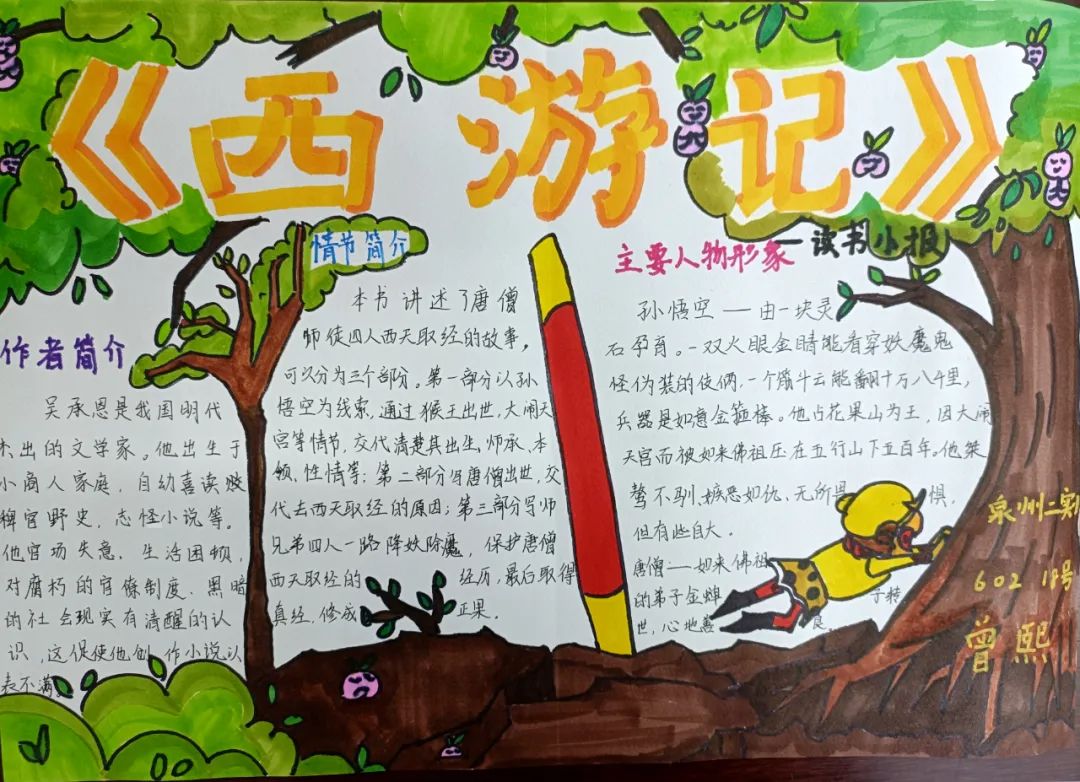 《西游记》
读书小报
作者简介
吴承恩是我国明代
杰出的文学家。他出生于
小商人家庭，自幼喜读
稗官野史，志怪小说等。
他官场失意，生活困顿，
对腐朽的官僚制度、黑暗
的社会现实有清醒的认
识，这促使他创作小说以
表不满。
情节简介
本书讲述了唐僧
师徒四人西天取经的故事。
可以分为三个部分。第一部分以孙
悟空为线索，通过猴王出世、大闹天
宫等情节，交代清楚其出生、师承、本
领、性情等；第二部分写唐僧出世，交
代去西天取经的原因；第三部分写师
兄弟四人一路降妖除魔，保护唐僧
西天取经的经历，最后取得
真经，修成正果。
主要人物形象
孙悟空——由一块灵
石孕育。一双火眼金睛能看穿妖魔鬼
怪伪装的伎俩，一个筋斗云能翻十万八千里，
兵器是如意金箍棒。他占花果山为王，因大闹
天宫而被如来佛祖压在五行山下五百年。他桀
骜不驯、嫉恶如仇、无所畏惧，
但有些自大。
唐僧——如来佛祖
的弟子金蝉子转
世，心地善良
泉州二实
602 18号
曾熙